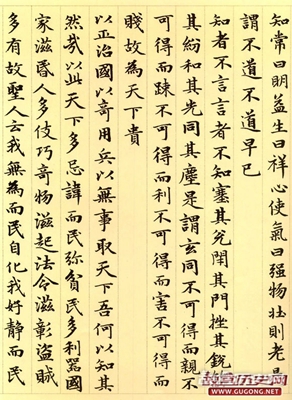 知常曰明益生曰祥心使氣曰强物壯則老是
謂不道不道早已
知者不言言者不知塞其兌閉其門挫其銳解
其紛和其光同其塵是謂玄同不可得而親不
可得而踈不可得而利不可得而害不可得而
賤故為天下貴
以正治國以奇用兵以無事取天下吾何以知其
然哉以此天下多忌諱而民弥貧民多利器國
家滋昏人多伎巧奇物滋起法令滋彰盜賊
多有故聖人云我無為而民自化我好靜而民
故宫历史网
www.GUGONG.NET